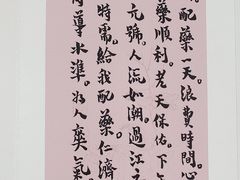 配藥一天。浪費時間。心
藥順利。老天保佑。下午
元號。人流如潮。過江之
特需。給我配藥。仁濟
導水準。為人爽氣。